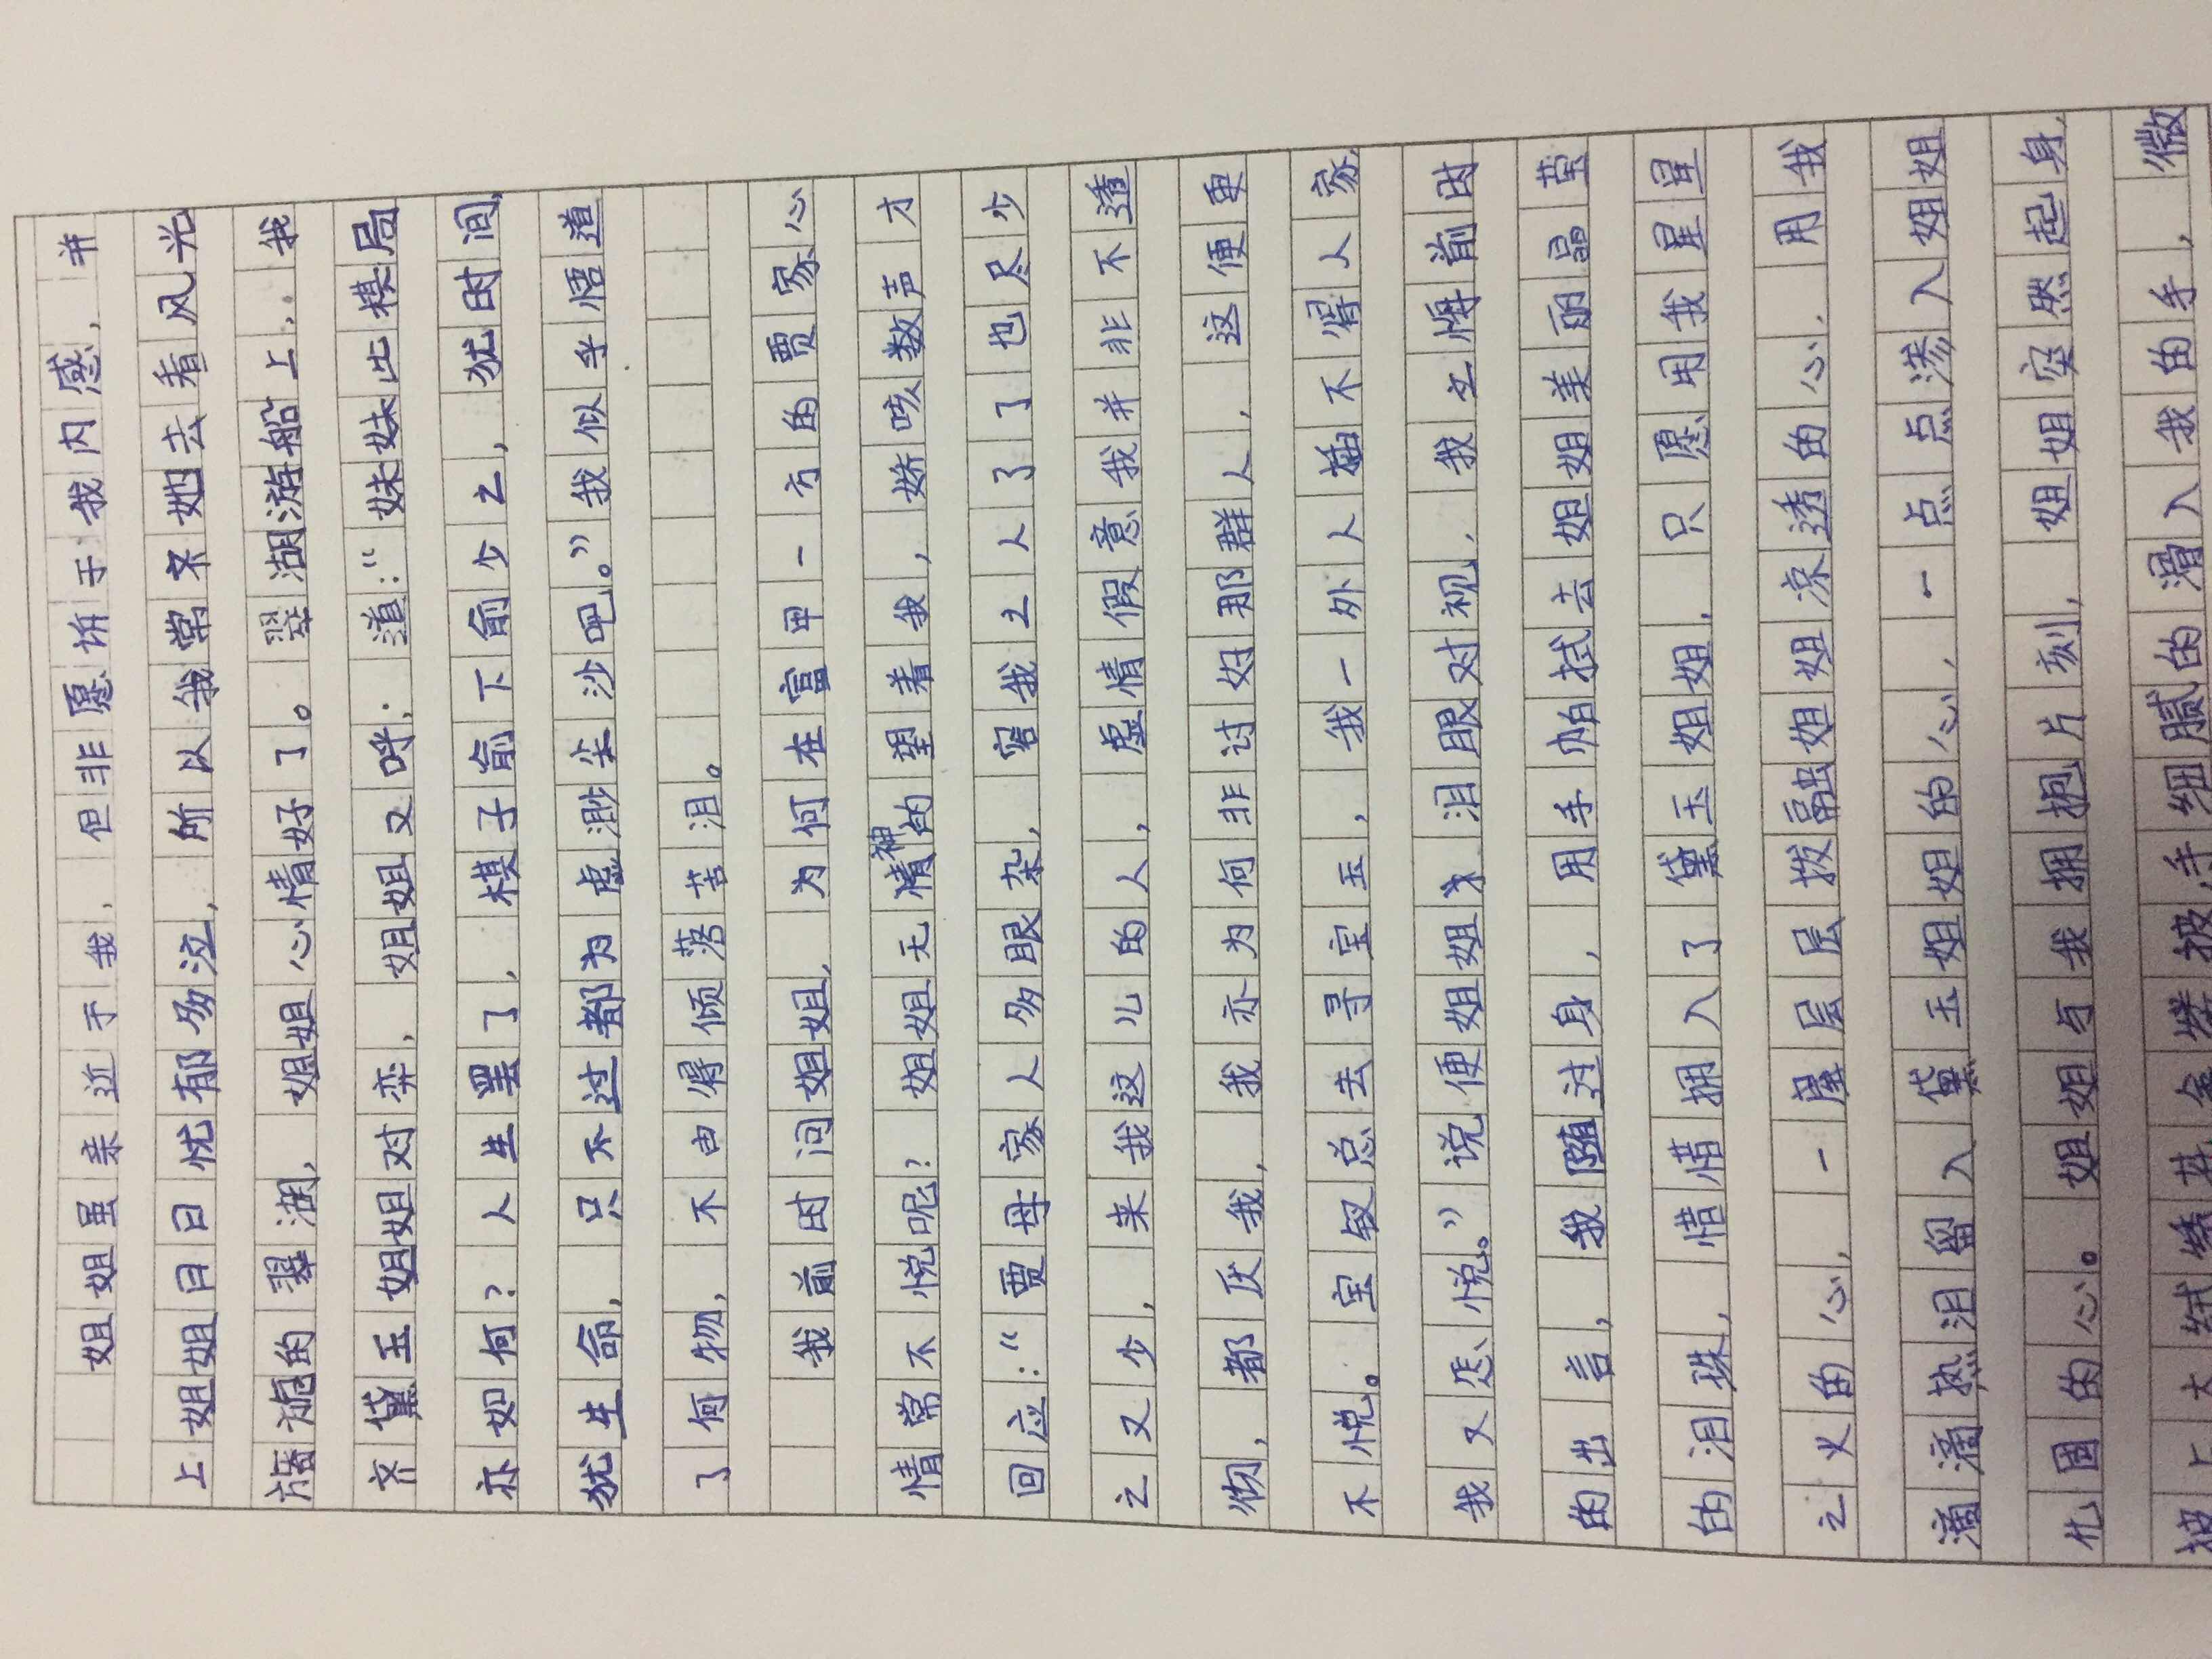 姐姐虽亲近于我，但非愿诉于我内感，并
上姐姐日日忧郁多泣，所以我常齐她去看风光
旖旎的翠湖，姐姐心情好了。翠湖游船上，我
齐黛玉姐姐对弈，姐姐又呼，道：“妹妹比棋局
亦如何？人生罢了，棋子俞下俞少之，犹时间，
犹生命，只不过都为虚渺尘沙吧。”我似乎悟道
了何物，不由得倾落苦泪。
我前时问姐姐，为何在富甲一方的贾家心
情常不悦呢？姐姐无神的望着我，娇咳数声才
回应：“贾母家人多眼杂，窖我之人了了也尽少
之又少，来我这儿的人，虚情假意我并非不透
彻，都厌我，我亦为何非讨好那群人，这便更
不悦。宝钗总去寻宝玉，我一外人插不得人家，
我又怎悦。”说便姐姐泪眼对视，我之悔前时
的出言，我随过身，用手帕拭去姐姐美丽晶莹
的泪珠，惜惜拥入了黛玉姐姐，只愿用我星星
之火的心，一层层层拨融姐姐凉透的心，用我
滴滴热泪留入黛玉姐姐的心，一点点渗入姐姐
化固的心。姐姐与我拥抱片刻，姐姐突然起身，
披上大 绣 金 被手细腻的滑入我的手，微